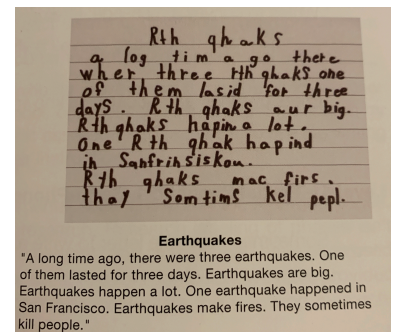 Rth qhaks
a log tim a go there
wher three rth qhaks one
of them lasid for three
days. Rth qhaks aur big.
Rth qhaks hapin a lot.
One Rth qhak hapind
in Sanfrinsiskou.
Rth qhaks mac firs.
thay Somtims kel pepl.
Earthquakes
"A long time ago, there were three earthquakes. One
of them lasted for three days. Earthquakes are big.
Earthquakes happen a lot. One earthquake happened in
San Francisco. Earthquakes make fires. They sometimes
kill people."